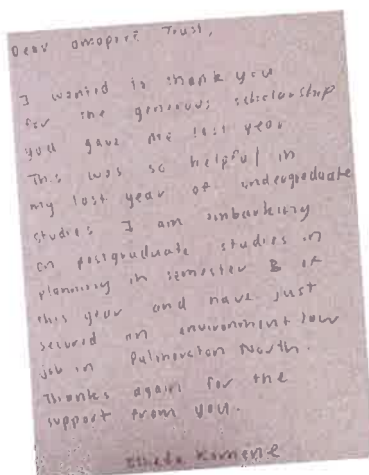 Dear Omapere Trust,
I wanted to thank you
for the generous scholarship
you gave me last year
This was so helpful in
my last year of undergraduate
studies I am embarking
on postgraduate studies in
planning in semester B of
this year and have just
secured an environment law
job in Palmerston North.
Thanks again for the
support from you.